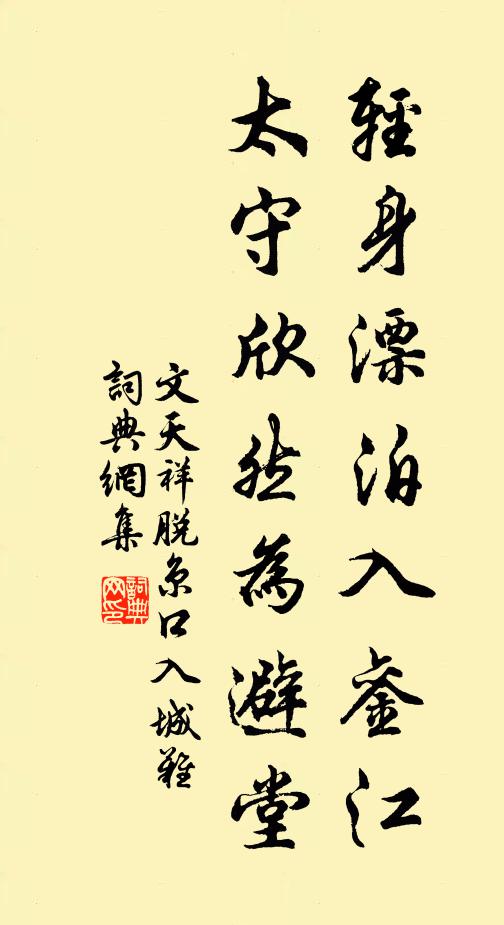 輕身漂泊入銮江
太守欣然為避堂
文天祥脱京口入城難
詞典網集
詞典
网印